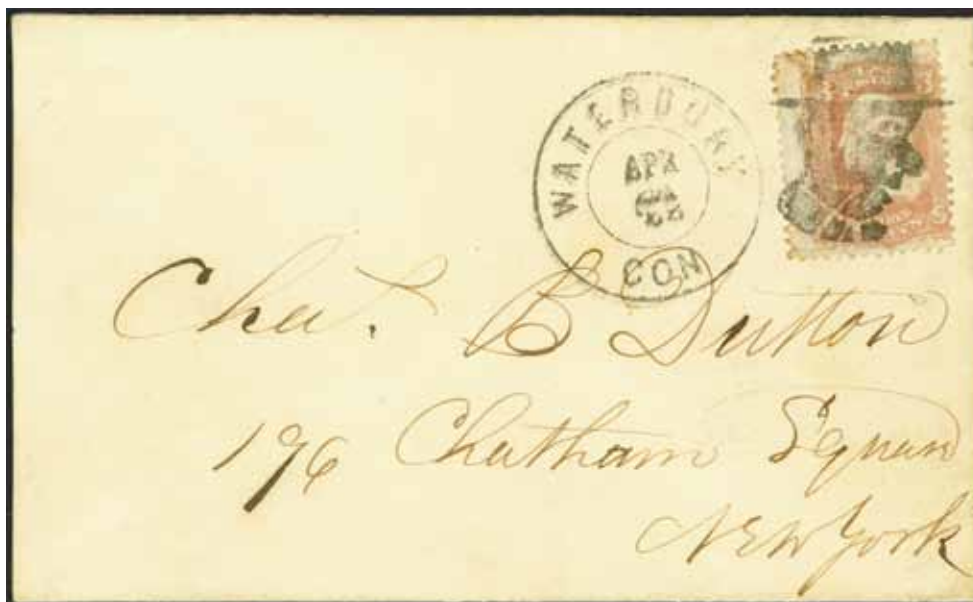 WATERBURY
APR
CON
Chas. B Dutton
196 Chatham Square
New York